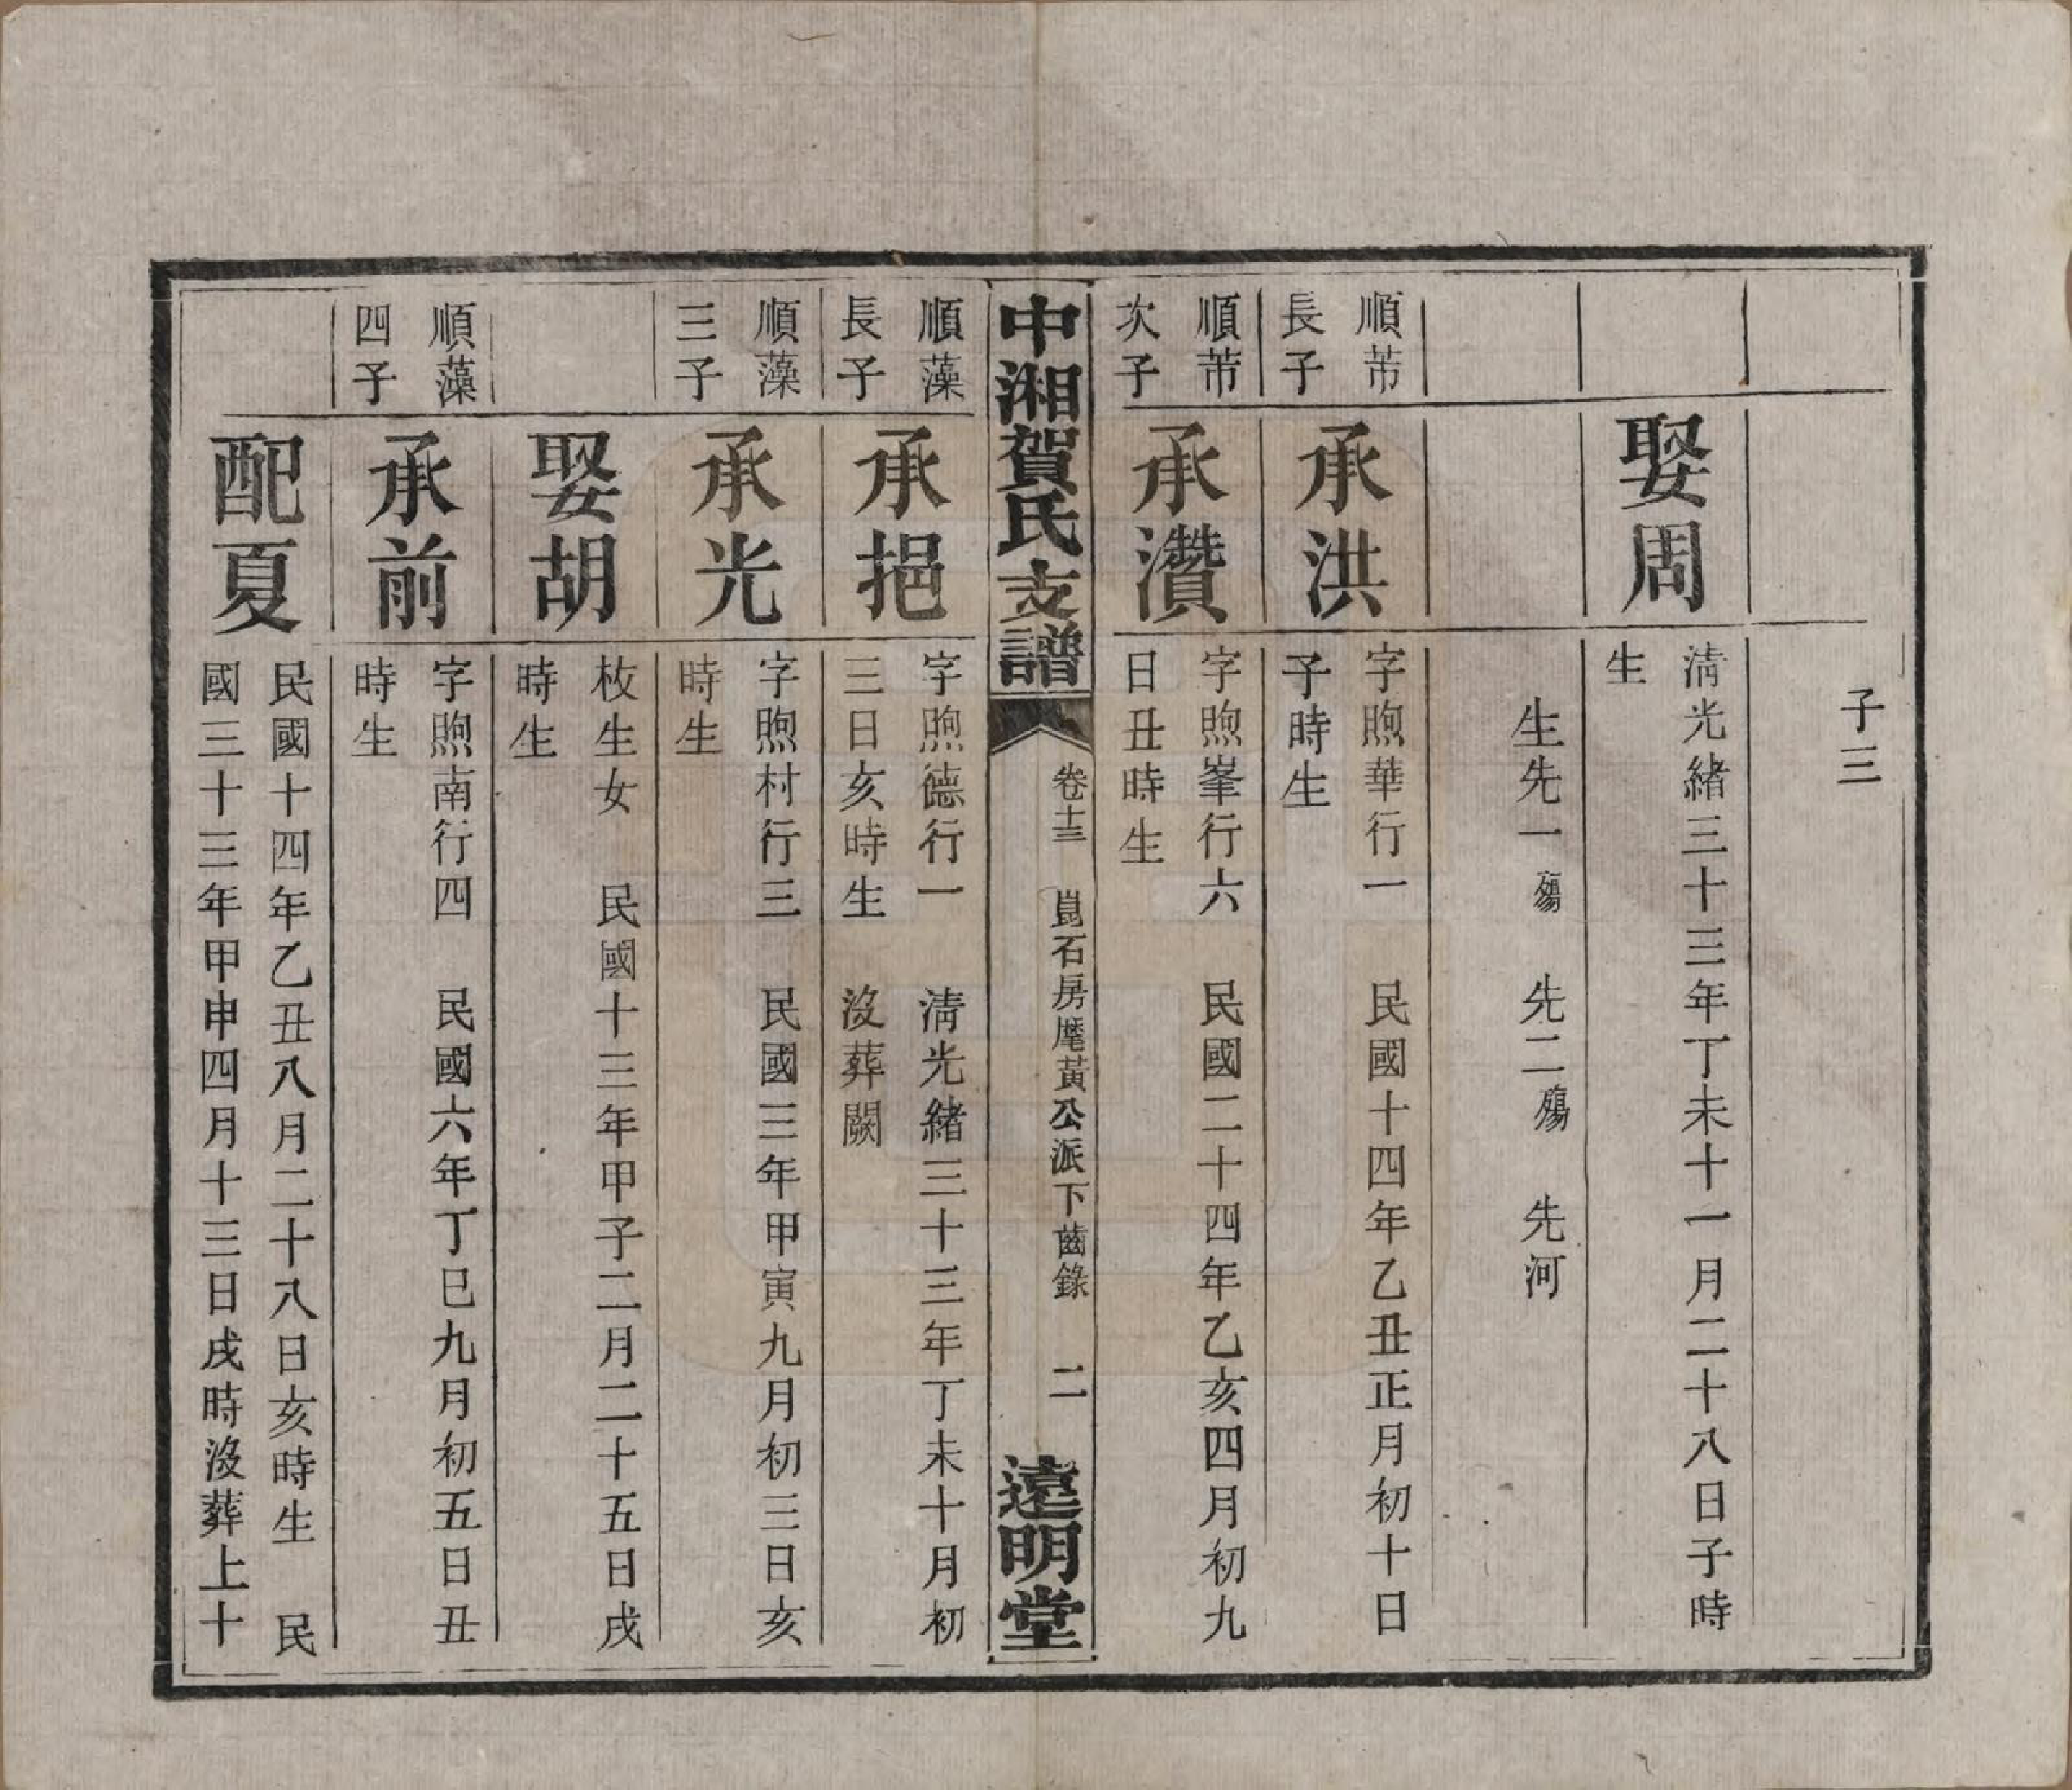 子三
娶周
清光緒三十三年丁未十一月二十八日子時
生
生先一殤 先二殤 先河
順芾
長子
承洪
字煦華行一 民國十四年乙丑正月初十日
子時生
順芾
次子
承瓚
字煦峯行六 民國二十四年乙亥四月初九
日丑時生
中湘賀氏支譜
卷十三 崑石房麾黃公派下齒錄 二
遠明堂
順藻
長子
承挹
字煦德行一 清光緒三十三年丁未十月初
三日亥時生 沒葬闕
順藻
三子
承光
字煦村行三 民國三年甲寅九月初三日亥
時生
娶胡
枚生女 民國十三年甲子二月二十五日戌
時生
順藻
四子
承前
字煦南行四 民國六年丁巳九月初五日丑
時生
配夏
民國十四年乙丑八月二十八日亥時生 民
國三十三年甲申四月十三日戌時沒葬上十